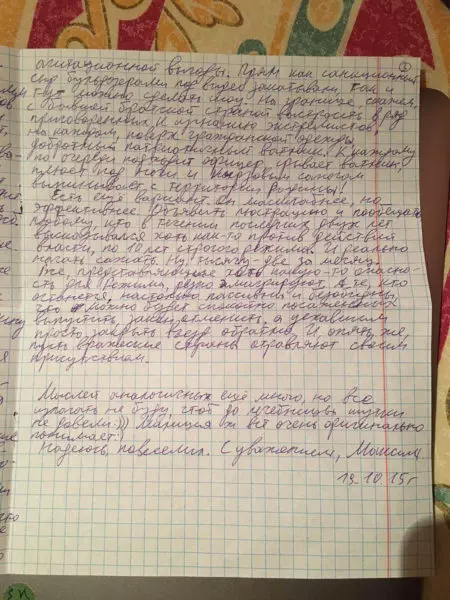 агитационной выгоды. Прям как санкционный
сыр бульдозерами под видео закатывали, так и
тут можно сделать шоу. На границе, скажем,
с бывшей братской страной выстроить в ряд
приговоренных к изгнанию экстремистов.
На каждом, поверх гражданской одежды
добротный патриотичный ватник. К каждому
по очереди подходит офицер, срывает ватник,
плюёт под ноги и сапогом
выпинывает с территории Родины!
Есть ещё вариант. Он масштабнее, но
эффективнее. Объявить люстрацию и пообещать
каждому, кто в течении последних двух лет
высказывался хоть как-то против действий
власти, по 10 лет строгого режима. И реально
начать сажать. Ну, тысячу-две за месяц.
Все, представляющие хоть какую-то опасно-
сть для режима, резко эмигрируют. А те, кто
останется, настолько пассивны и безобидны,
что можно будет спокойно посаженных
выпустить, закон отменить, а уехавшим
просто закрыть въезд обратно. И опять же,
пусть вражеские страны отравляют своим
присутствием.
Мыслей аналогичных ещё много, но все
излагать не буду, чтоб до учебников
не довели))) Милиция ж всё очень оригинально
понимает.
Надеюсь, повеселил. С уважением, Максим
19.10.15г